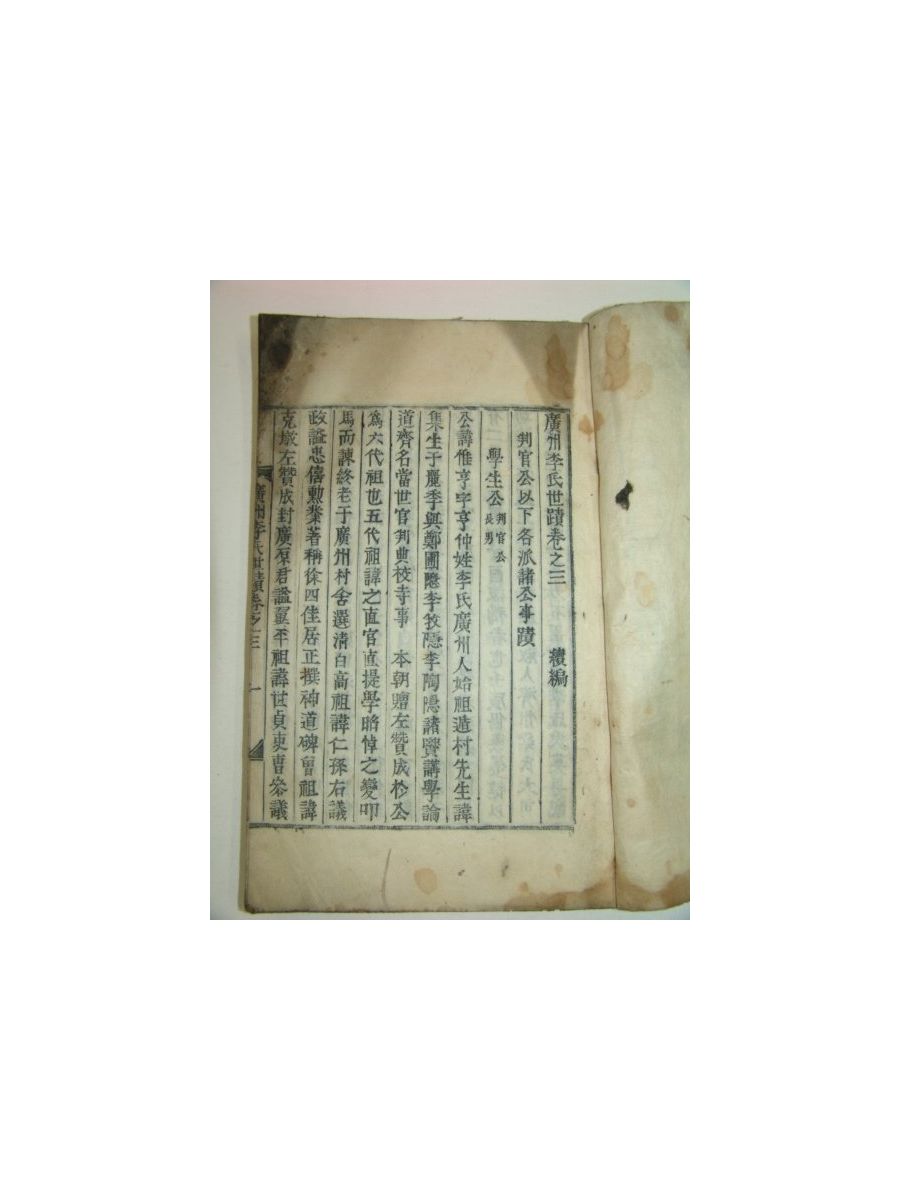 廣州李氏世蹟卷之三
判官公以下各派諸公事蹟 續編
學生公 判官公長男
公諱惟亨字亨仲姓李氏廣州人始祖遁村先生諱
集生于麗季與鄭圃隱李牧隱李陶隱諸賢講學論
道齊名當世官判典校寺事 本朝贈左贊成於公
爲六代祖也五代祖諱之直官直提學昭悼之變叩
馬而諫終老于廣州村舍選清白高祖諱仁孫右議
政謚忠僖勲業著稱徐四佳居正撰神道碑曾祖諱
克墩左贊成封廣原君謚翼平祖諱世貞吏曹參議
廣州李氏世蹟卷之三 一